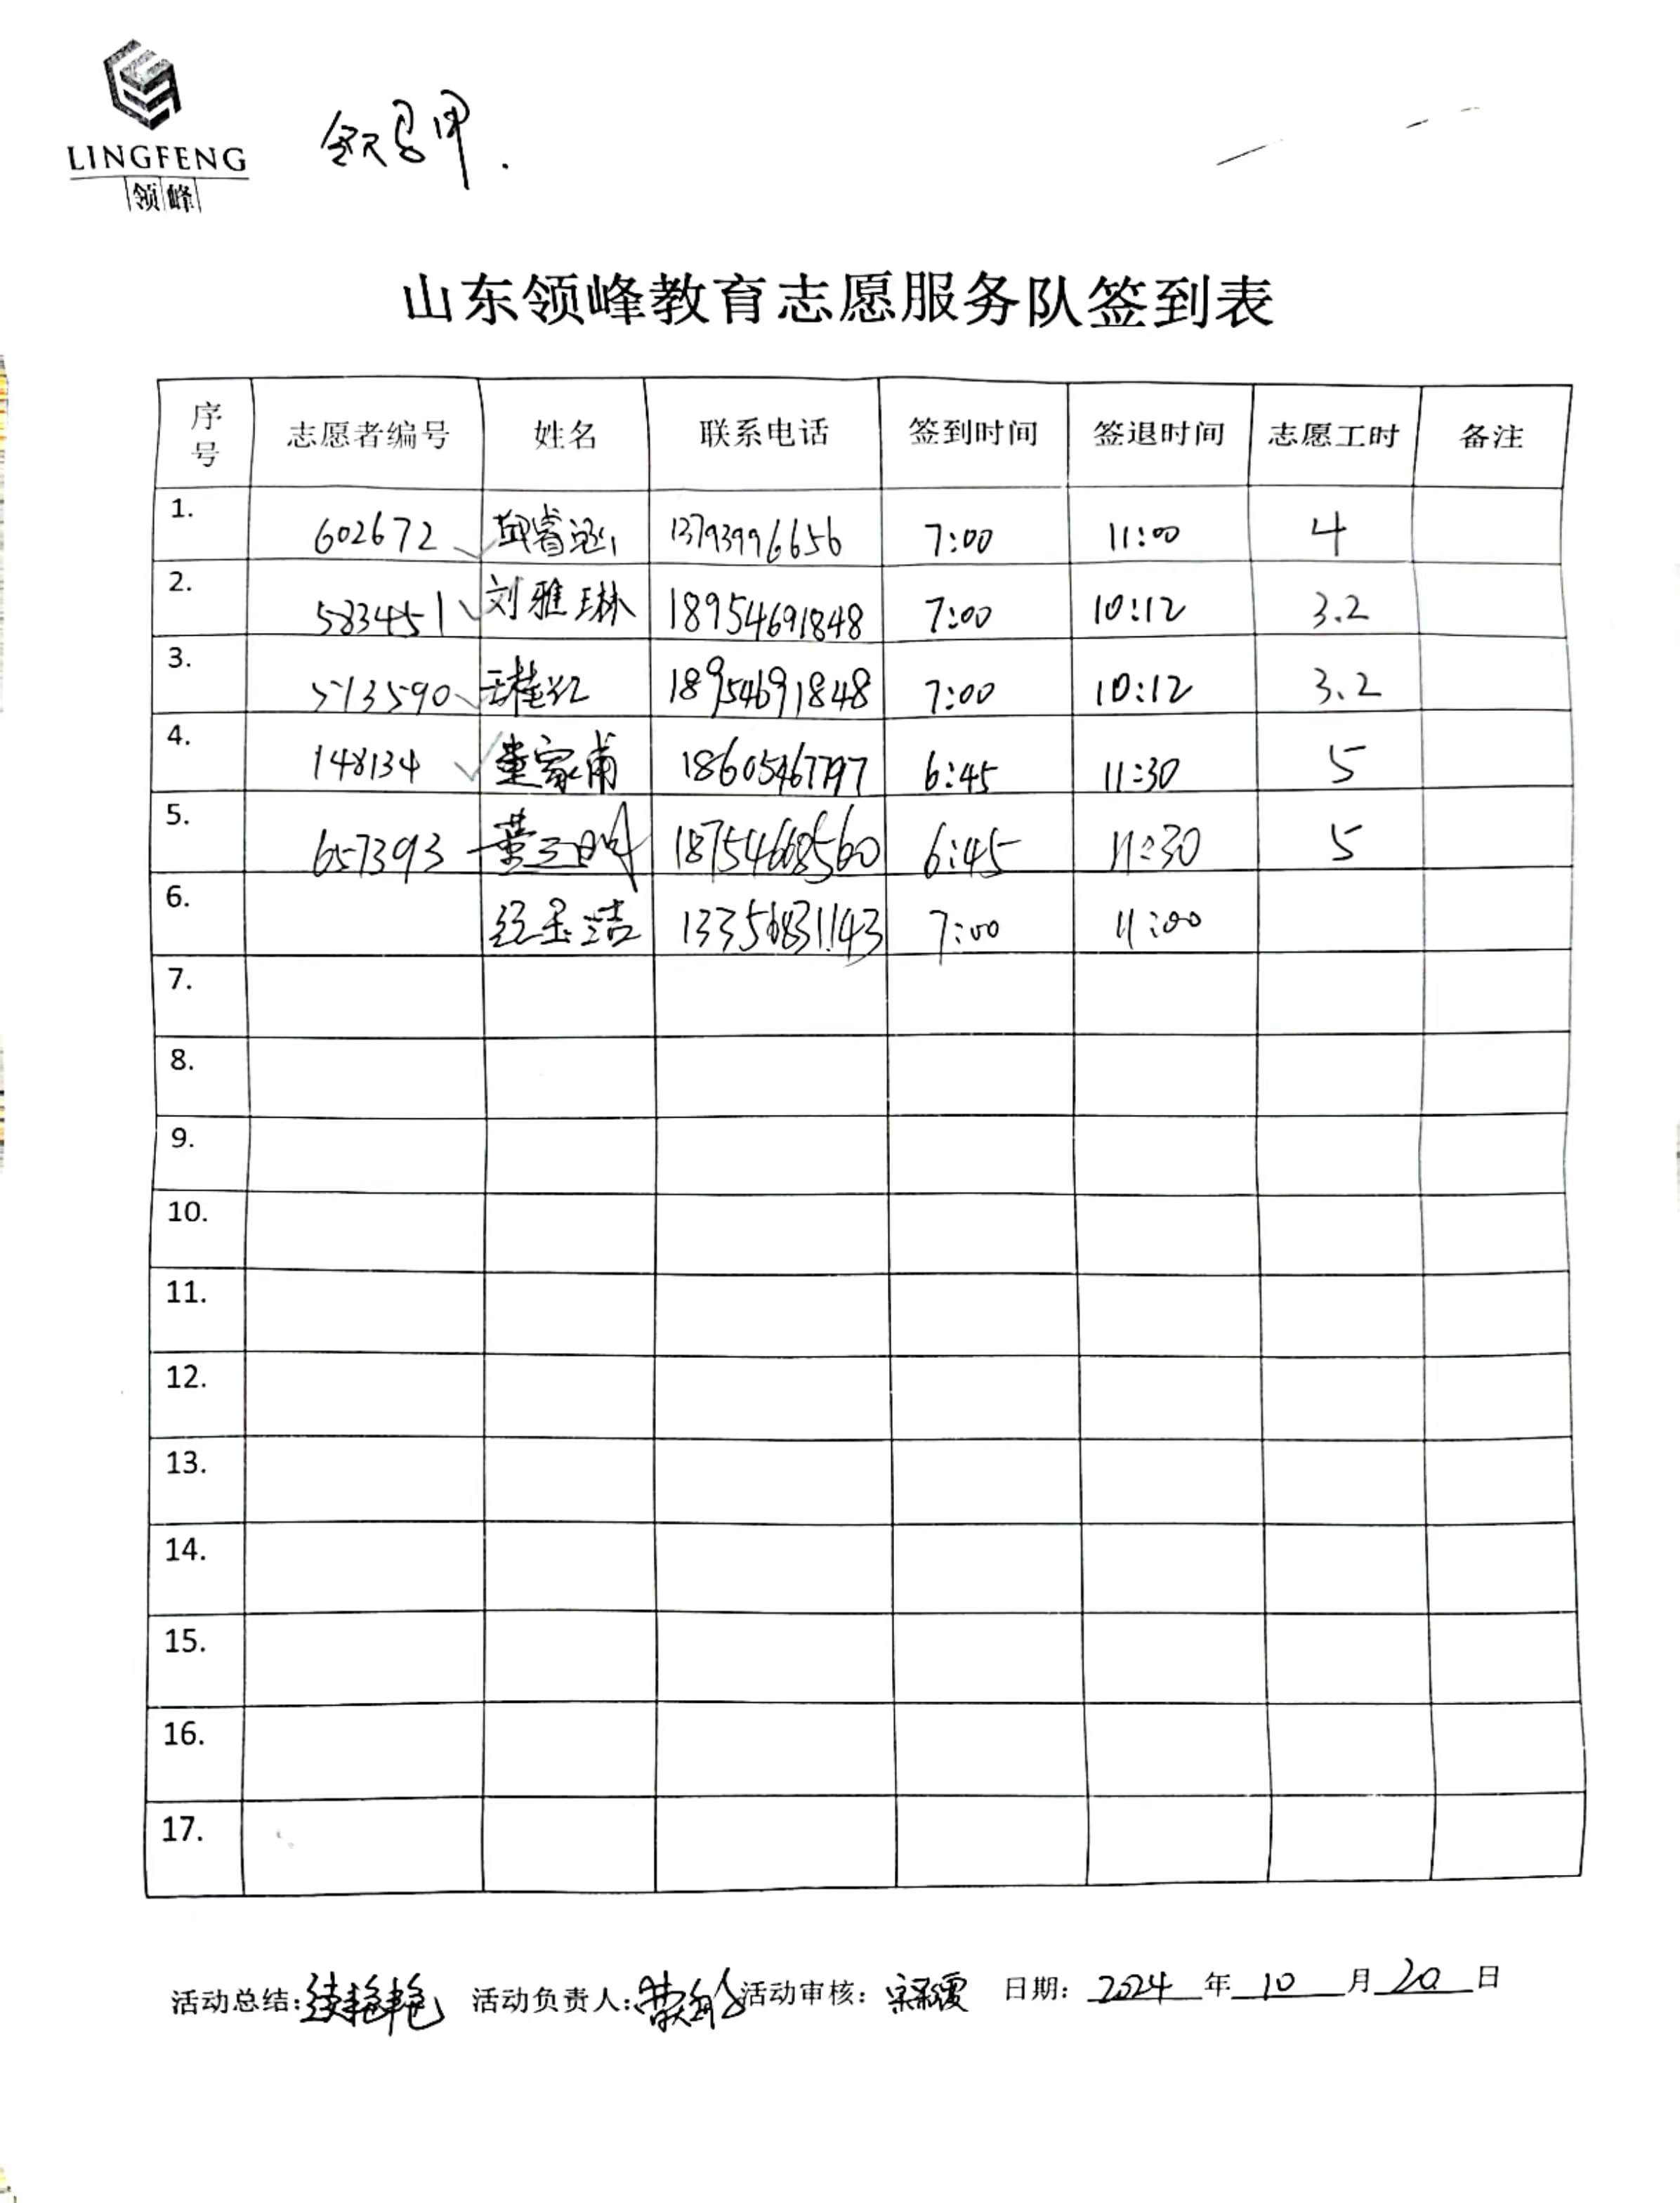 LINGFENG
领峰
山东领峰教育志愿服务队签到表
序号 志愿者编号 姓名 联系电话 签到时间 签退时间 志愿工时 备注
1. 602672 13793996656 7:00 11:00 4
2. 583451 刘雅琳 18954691848 7:00 10:12 3.2
3. 513590 18954691848 7:00 10:12 3.2
4. 148134 董家甫 18605467797 6:45 11:30 5
5. 657393 18754668560 6:45 11:30 5
6. 13356831143 7:00 11:00
7.
8.
9.
10.
11.
12.
13.
14.
15.
16.
17.
活动总结: 活动负责人: 活动审核: 日期: 2024 年 10 月 20 日